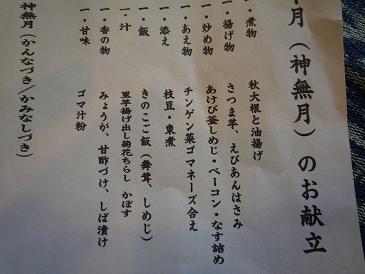 十月(神無月)のお献立
一・煮物 秋大根と油揚げ
一・揚げ物 さつま芋、えびあんはさみ
一・炒め物 あけび釜しめじ・ベーコン・なす詰め
一・あえ物 チンゲン菜ゴマネーズ合え
一・添え 枝豆・東煮
一・飯 きのこご飯(舞茸、しめじ)
一・汁 里芋揚げ出し菊花ちらし かぼす
一・香の物 みょうが、甘酢づけ、しば漬け
一・甘味 ゴマ汁粉
神無月(かんなづき/かみなしづき)